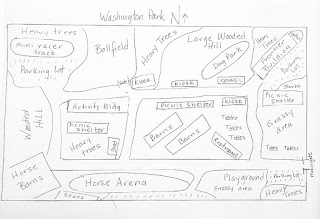 Washington Park N↑
Heavy trees
mini racer
track
Parking lot
Ballfield
Heavy Trees
Large Wooded
Hill
Dog Park
KIOSK
KIOSK
KENNEL
Heavy
Trees
Pioneer
Building
Parking
lot
Wooded
Hill
Activity Bldg
Picnic
Shelter
Heavy
trees
Picnic Shelter
KIOSK
Barns
Barns
Tables
Tables
Tables
Restrooms
Picnic
Shelter
Grassy
area
Tables
Horse
Barns
Horse Arena
Playground
Grassy area
Parking lot
Heavy
Trees